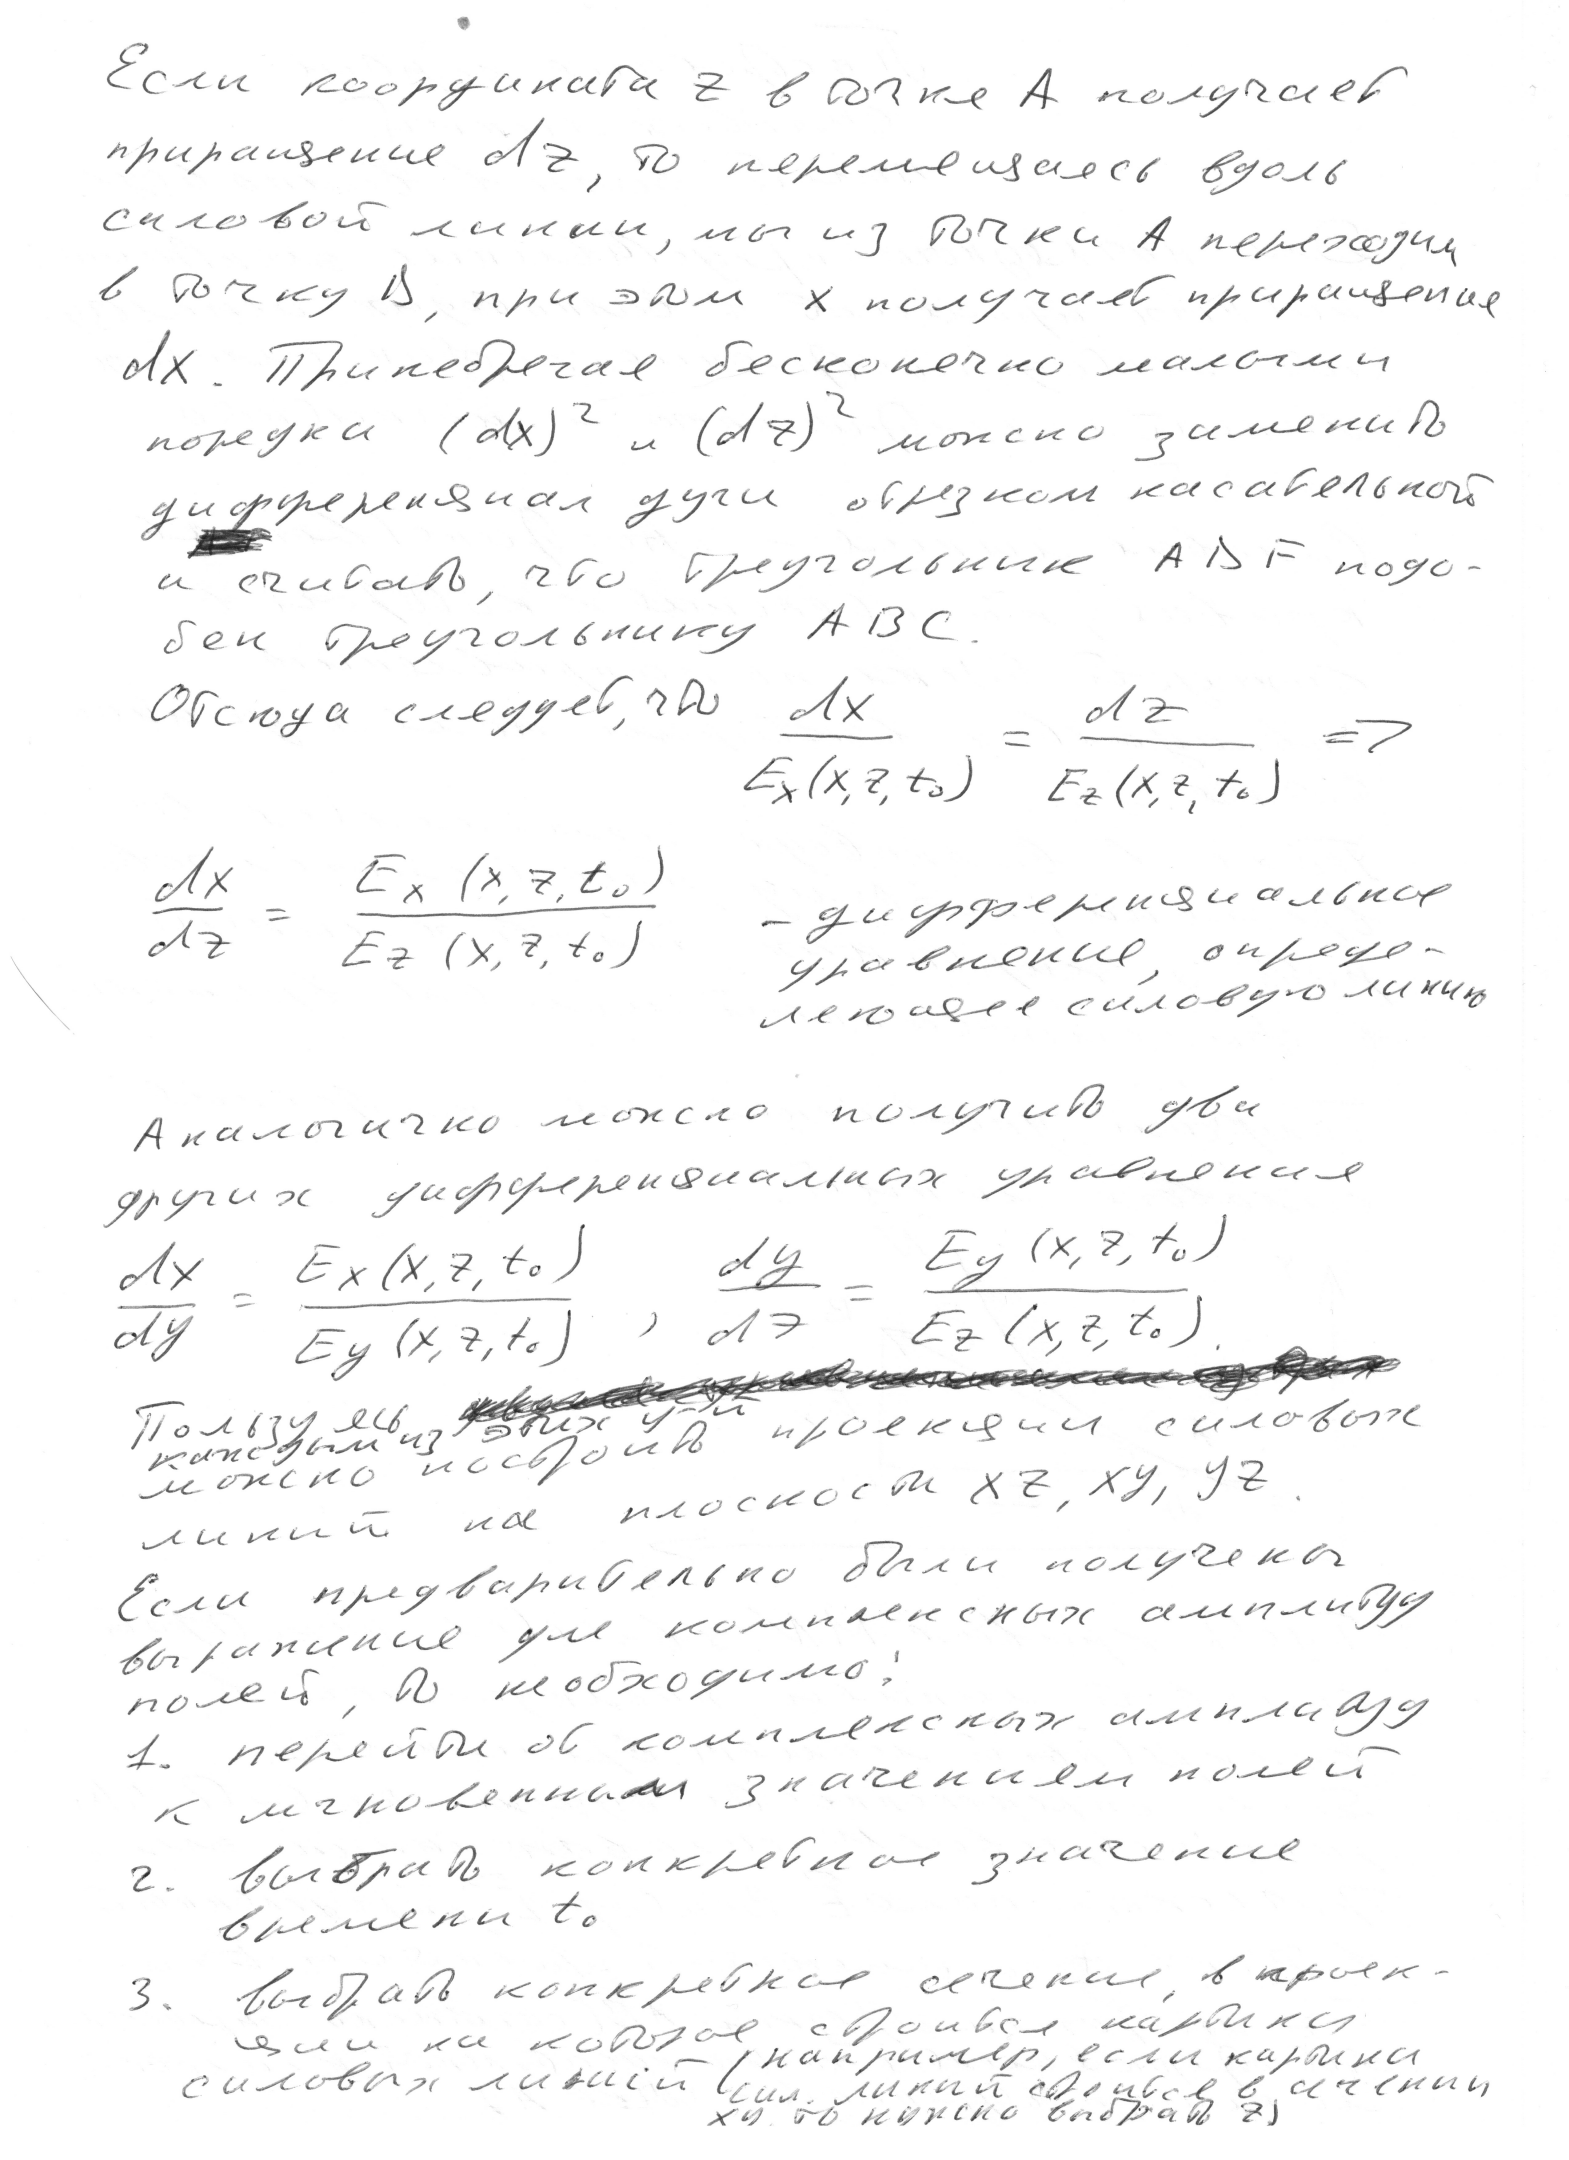 Если координата z в точке A получает
приращение dz, то перемещаясь вдоль
силовой линии, мы из точки A переходим
в точку B, при этом x получает приращение
dx. Принебрегая бесконечно малыми
порядка (dx)² и (dz)² можно заменить
дифференциал дуги отрезком касательной
и считать, что треугольник ABF подо-
бен треугольнику ABC.
Отсюда следует, что dx / Ex(x,z,t₀) = dz / Ez(x,z,t₀) =>
dx/dz = Ex(x,z,t₀) / Ez(x,z,t₀) - дифференциальное
уравнение, опреде-
ляющее силовую линию
Аналогично можно получить два
других дифференциальных уравнения
dx/dy = Ex(x,z,t₀) / Ey(x,z,t₀) , dy/dz = Ey(x,z,t₀) / Ez(x,z,t₀).
Пользуясь
каждым из этих ур-й
можно построить проекции силовых
линий на плоскости xz, xy, yz.
Если предварительно были получены
выражение для комплексных амплитуд
полей, то необходимо:
1. перейти от комплексных амплитуд
к мгновенным значениям полей
2. выбрать конкретное значение
времени t₀
3. выбрать конкретное сечение, в проек-
ции на которое строится картина
силовых линий (например, если картина
сил. линий строится в сечении
xy, то нужно выбрать z)